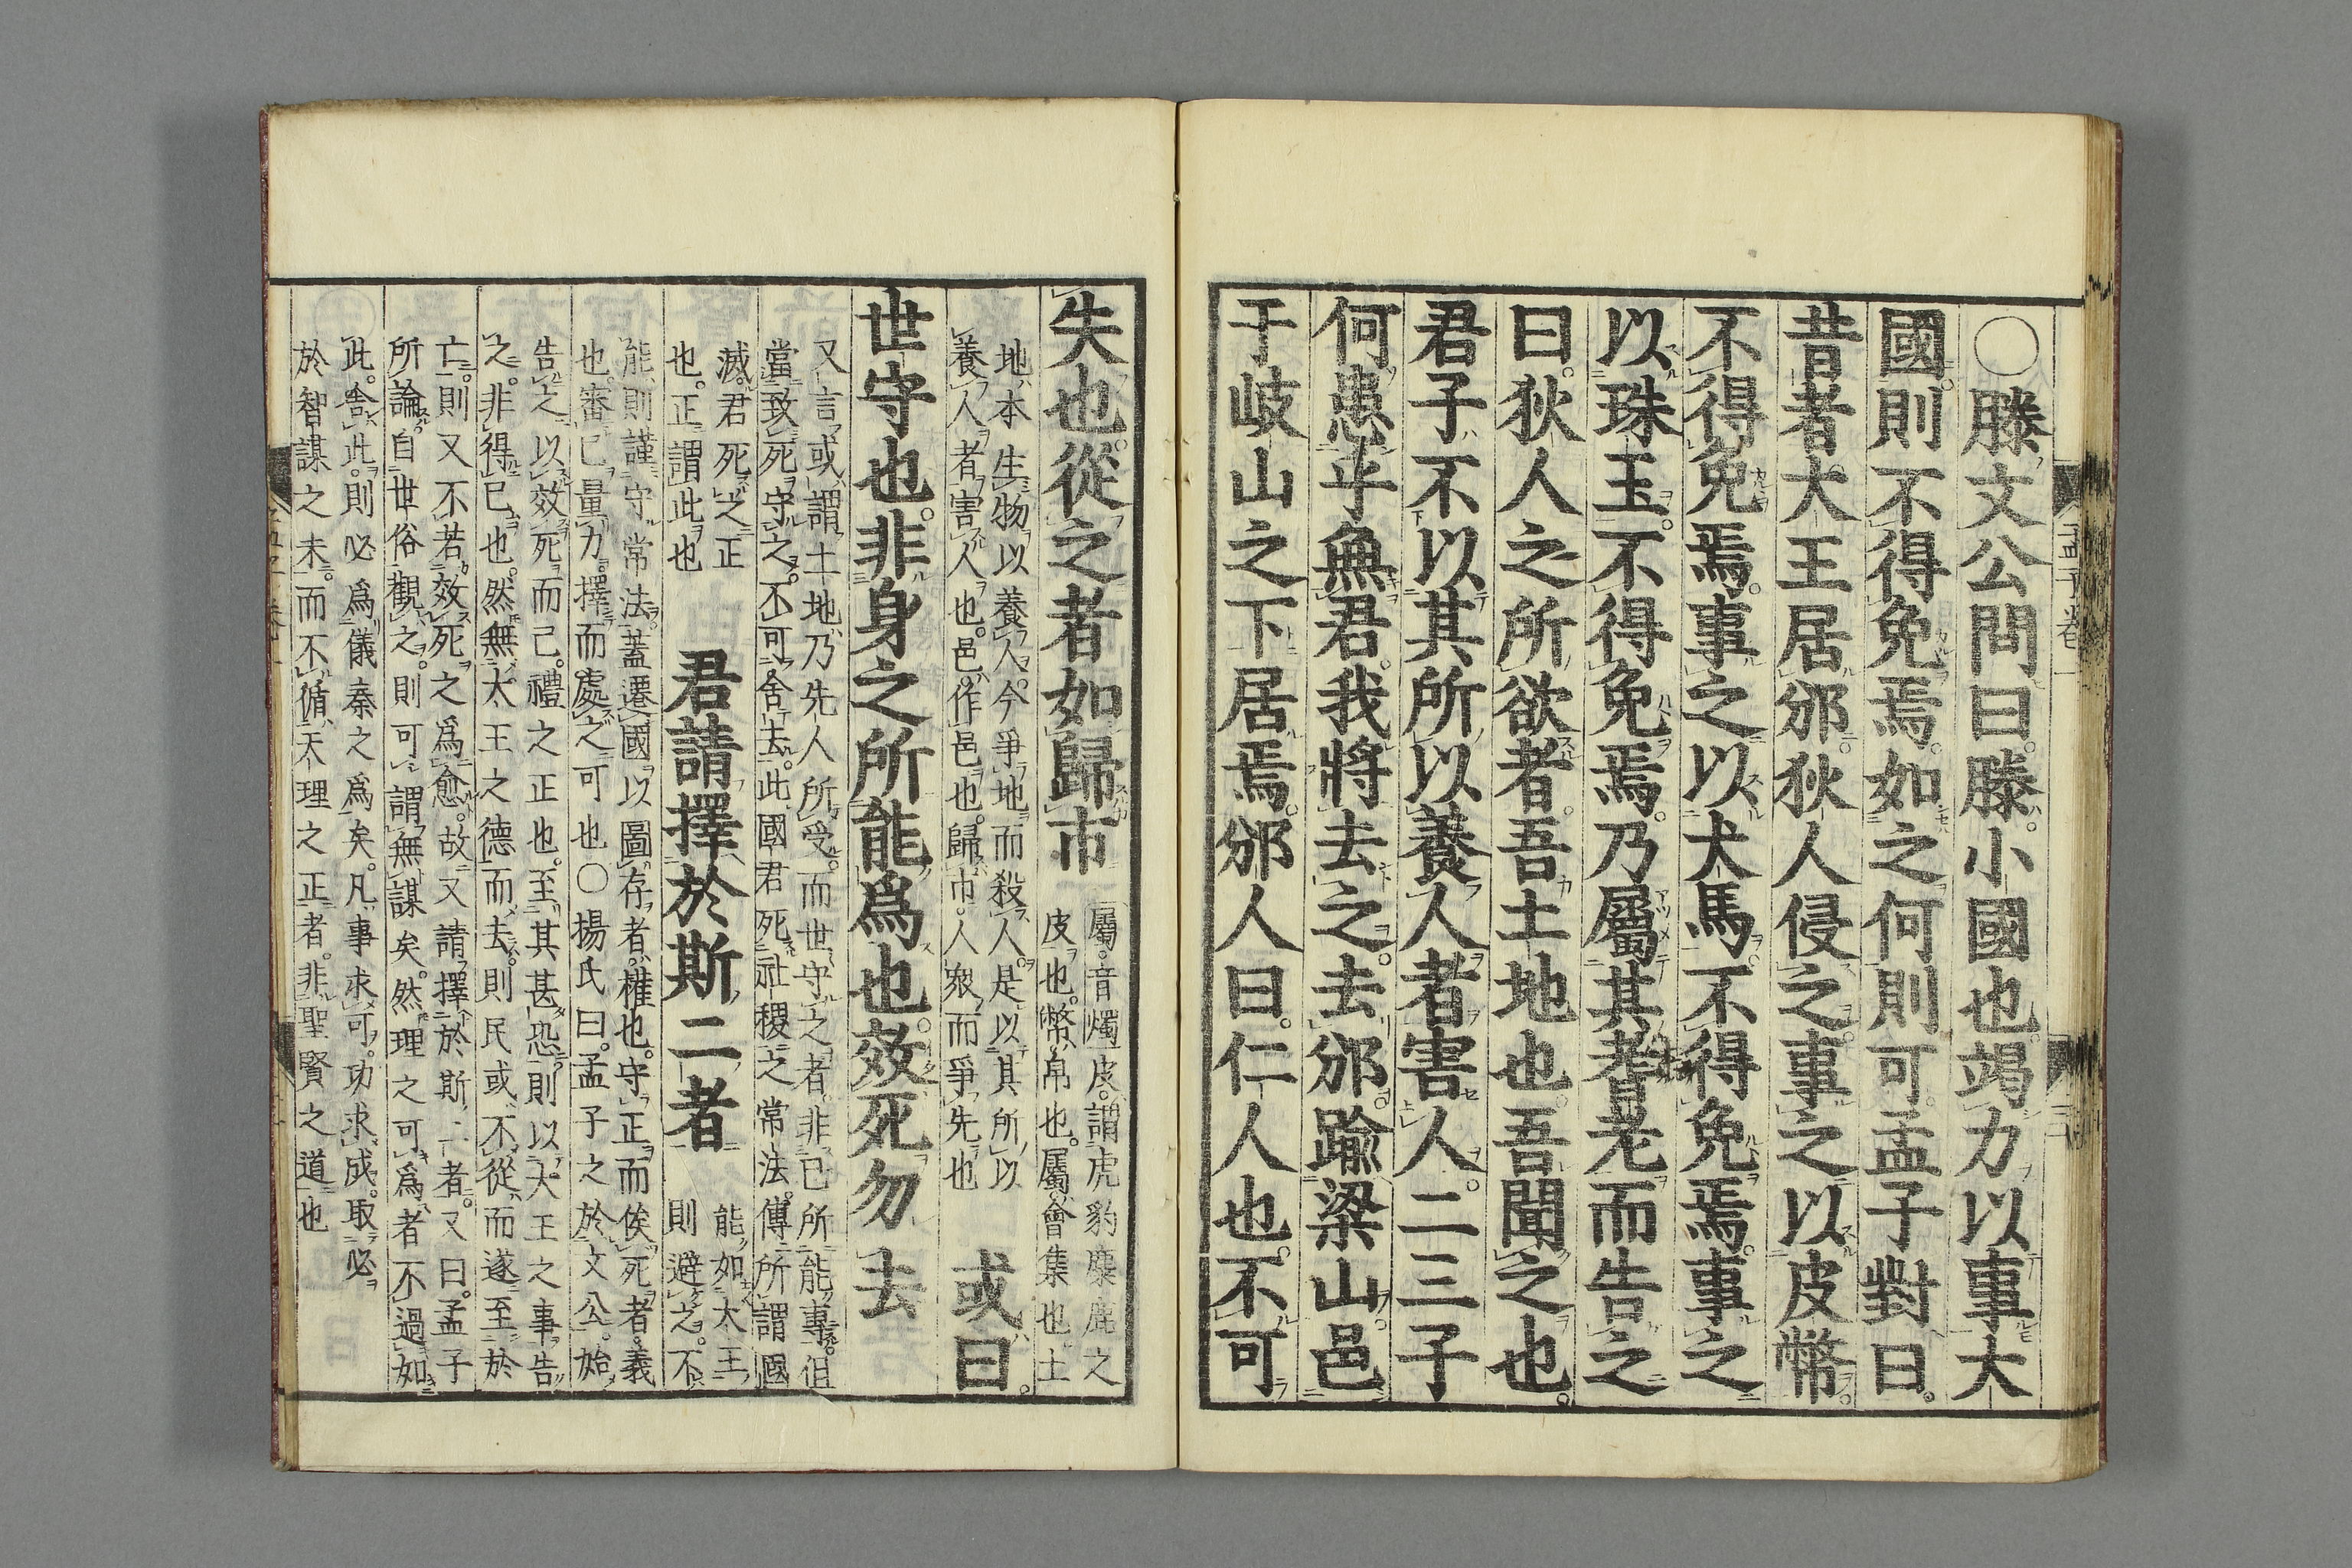 ○滕文公問曰滕小國也竭力以事大
國則不得免焉如之何則可孟子對曰
昔者大王居邠狄人侵之事之以皮幣
不得免焉事之以犬馬不得免焉事之
以珠玉不得免焉乃屬其耆老而告之
曰狄人之所欲者吾土地也吾聞之也
君子不以其所以養人者害人二三子
何患乎無君我將去之去邠踰梁山邑
于岐山之下居焉邠人曰仁人也不可
失也從之者如歸市
屬音燭皮謂虎豹麋鹿之
皮也幣帛也屬會集也土
地本生物以養人今爭地而殺人是以其所以
養人者害人也邑作邑也歸市人衆而爭先也
或曰
世守也非身之所能爲也效死勿去
又言或謂土地乃先人所受而世守之者非己所能專但
當致死守之不可舍去此國君死社稷之常法傳所謂國
滅君死之正
也正謂此也
君請擇於斯二者
能如大王
則避之不
能則謹守常法蓋遷國以圖存者權也守正而俟死者義
也審己量力擇而處之可也○楊氏曰孟子之於文公始
告之以效死而已禮之正也至其甚恐則以大王之事告
之非得已也然無大王之德而去則民或不從而遂至於
亡則又不若效死之爲愈故又請擇於斯二者又曰孟子
所論自世俗觀之則可謂無謀矣然理之可爲者不過如
此舍此則必爲儀秦之爲矣凡事求可功求成取必
於智謀之末而不循天理之正者非聖賢之道也